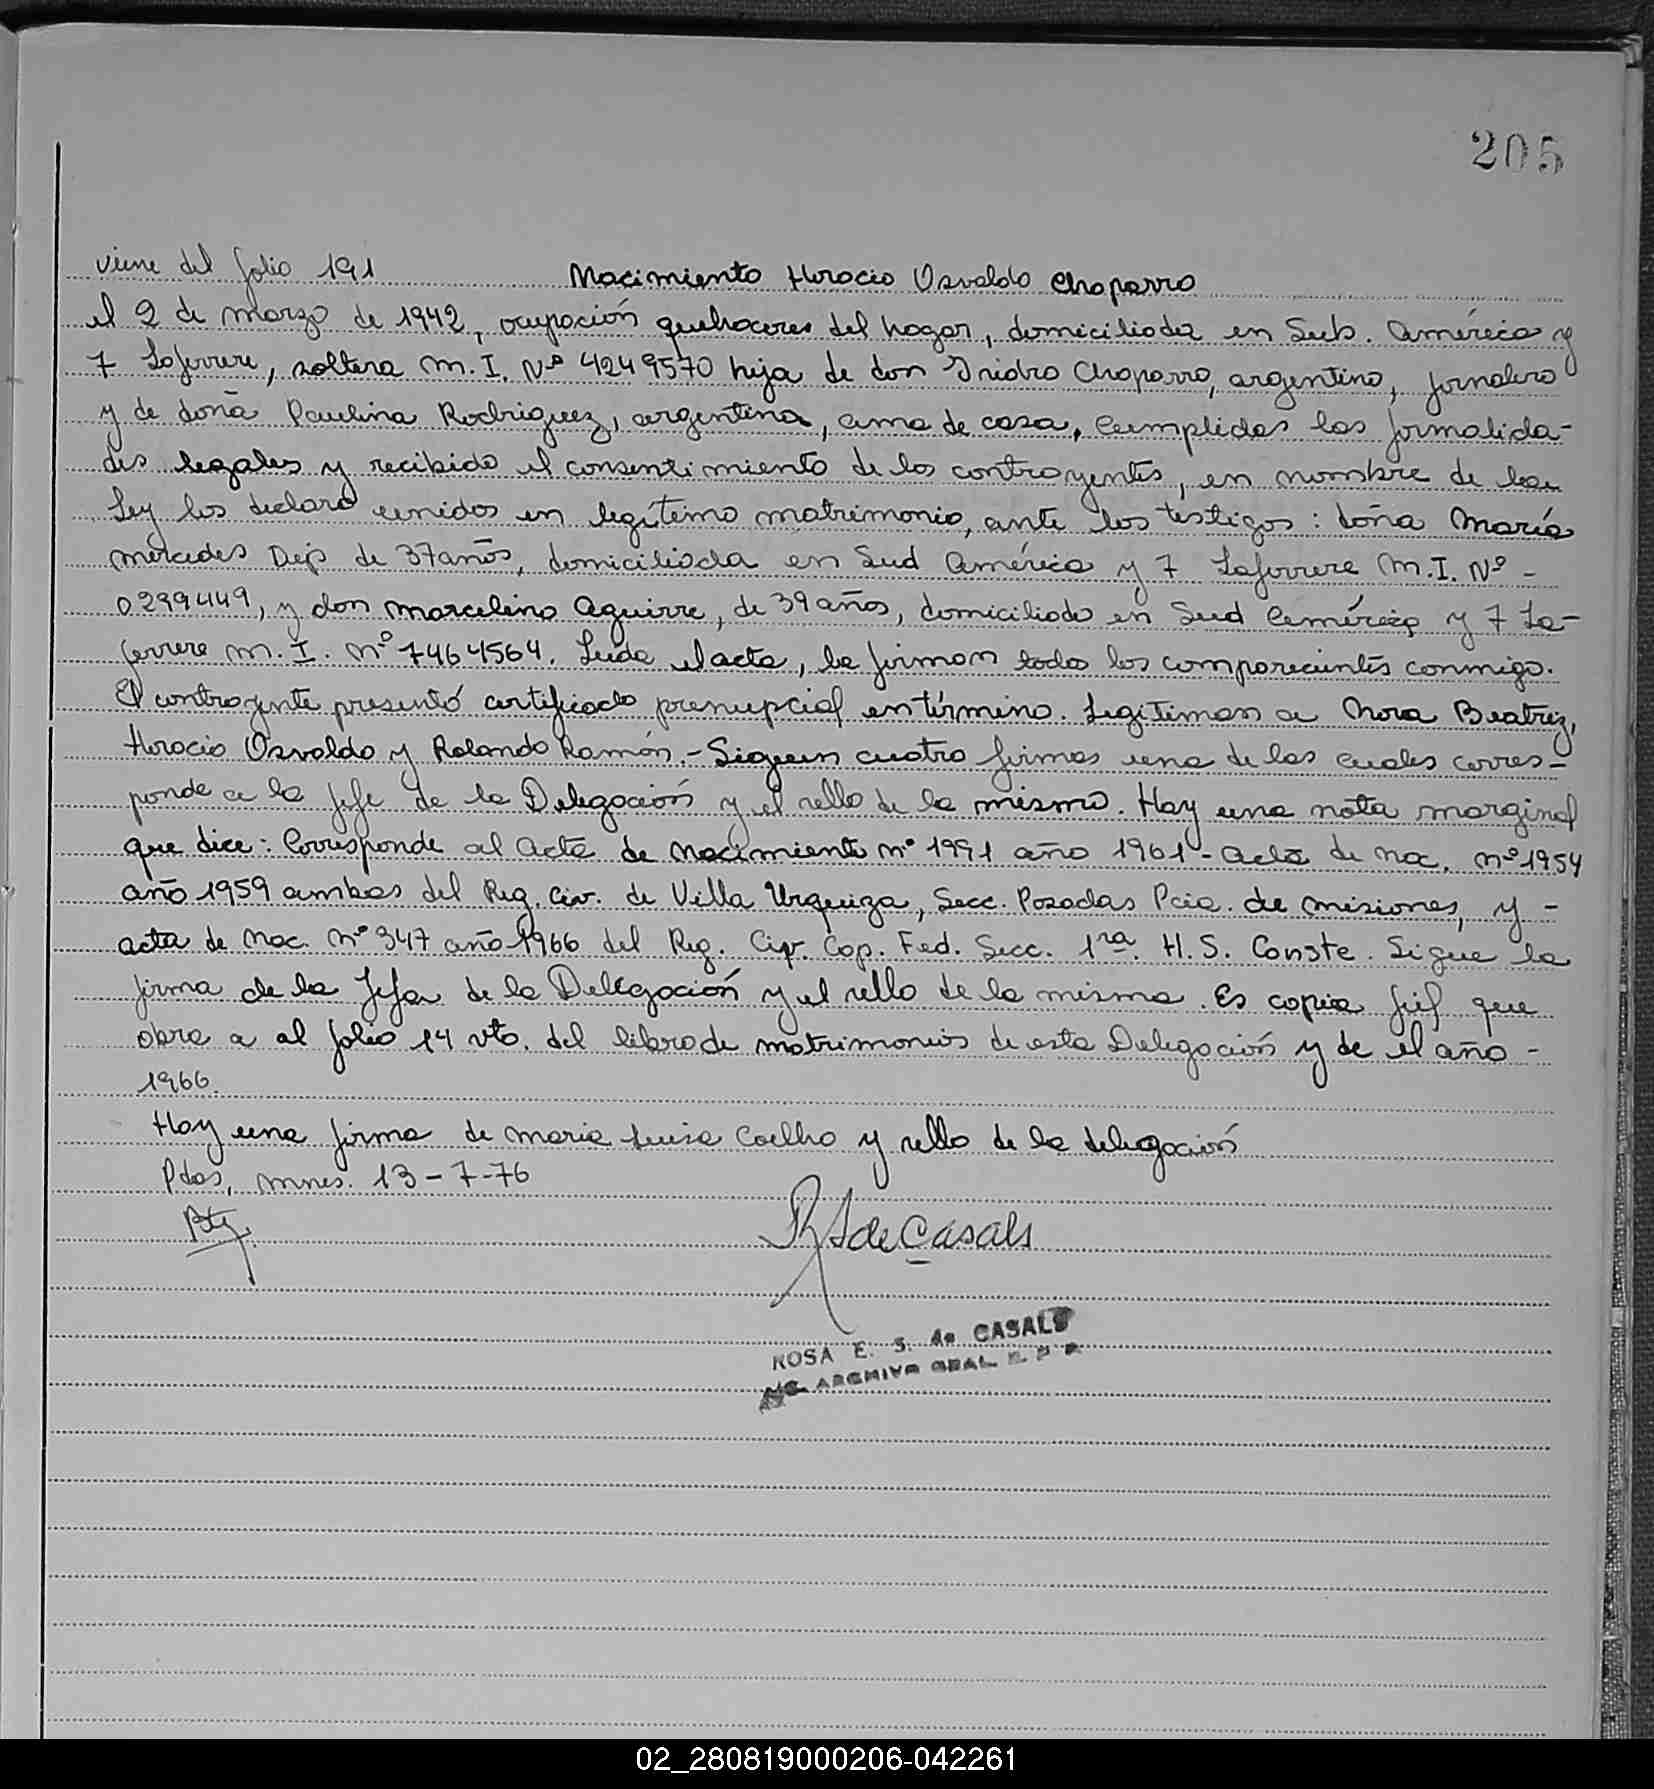 205
viene del folio 191 Nacimiento Horacio Osvaldo Chaparro
el 2 de marzo de 1942, ocupación quehaceres del hogar, domiciliada en Sub. América y
7 Laferrere, soltera M. I. Nº 4249570 hija de don Isidro Chaparro, argentino, jornalero
y de doña Paulina Rodriguez, argentina, ama de casa, Cumplidas las formalida-
des legales y recibido el consentimiento de los contrayentes, en nombre de la
Ley los declaro unidos en legítimo matrimonio, ante los testigos: doña María
mercedes de 37 años, domiciliada en Sud América y 7 Laferrere M. I. Nº -
0299449, y don Marcelino Aguirre, de 39 años, domiciliado en Sud América y 7 La-
ferrere M. I. nº 7464564. Leida el acta, la firman todos los comparecientes conmigo.
El contrayente presentó certificado prenupcial en término. Legitiman a Nora Beatriz,
Horacio Osvaldo y Rolando Ramón.- Siguen cuatro firmas una de las cuales corres-
ponde a la Jefe de la Delegación y el sello de la misma. Hay una nota marginal
que dice: Corresponde al Acta de Nacimiento nº 1991 año 1961 - Acta de nac. nº 1954
año 1959 ambas del Reg. Civ. de Villa Urquiza, Secc. Posadas Pcia. de misiones, y -
acta de nac. nº 347 año 1966 del Reg. Civ. Cap. Fed. Secc. 1ra. H. S. Conste. Sigue la
firma de la Jefa de la Delegación y el sello de la misma. Es copia fiel que
obra a al folio 14 vto. del libro de matrimonios de esta Delegación y de el año -
1966.
Hay una firma de maria Luisa Coelho y sello de la delegación
Pdas, mnes. 13-7-76
R S de Casals
ROSA E. S. de CASALS
ARCHIVO GRAL. R. P. P.
02_280819000206-042261